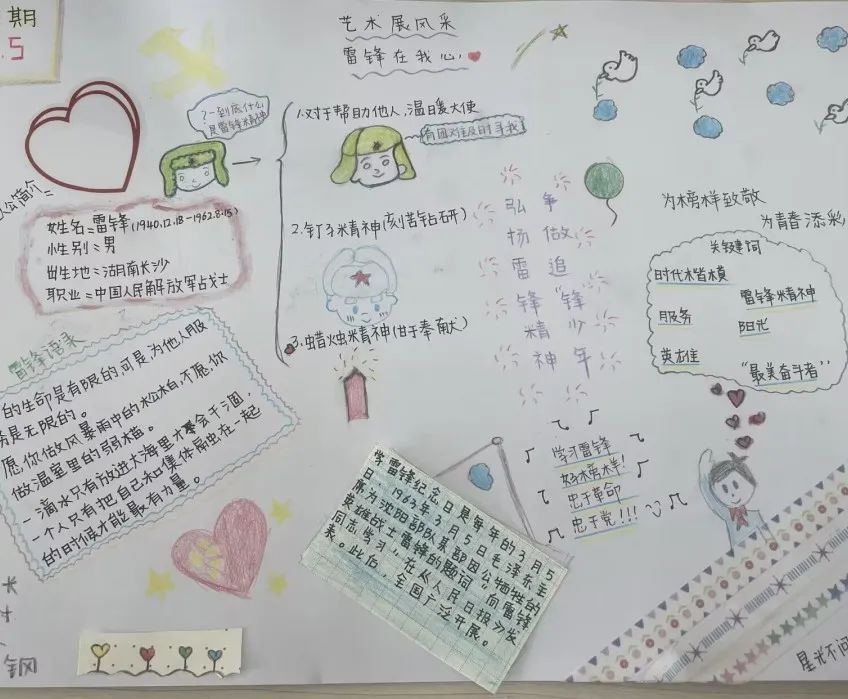 期
.5
艺术展风采
雷锋在我心
?一到底什么
是雷锋精神
1.对于帮助他人,温暖大使
有困难及时寻我
2.钉子精神(刻苦钻研)
3.蜡烛精神(甘于奉献)
公简介
姓名=雷锋(1940.12.18-1962.8.15)
性别=男
出生地=湖南长沙
职业=中国人民解放军占战士
雷锋语录
的生命是有限的,可是为他人服
务是无限的。
愿你做风暴雨中的松柏,不愿你
做温室里的弱苗。
一滴水只有放进大海里才会干涸,
一个人只有把自己和集体融在一起
的时候才能最有力量。
弘扬雷锋精神
争做追"锋"少年
为榜样致敬
为青春添彩
关键词
时代楷模
雷锋精神
服务
阳光
英雄
"最美奋斗者"
学习雷锋
好榜样!
忠于革命
忠于党!!!
学雷锋纪念日是每年的3月5
日,1963年3月5日毛泽东主
席为沈阳部队某部因公牺牲的
英雄战士雷锋的题词"向雷锋
同志学习",在《人民日报》发
表。此后,全国广泛开展。
钢
星光不问